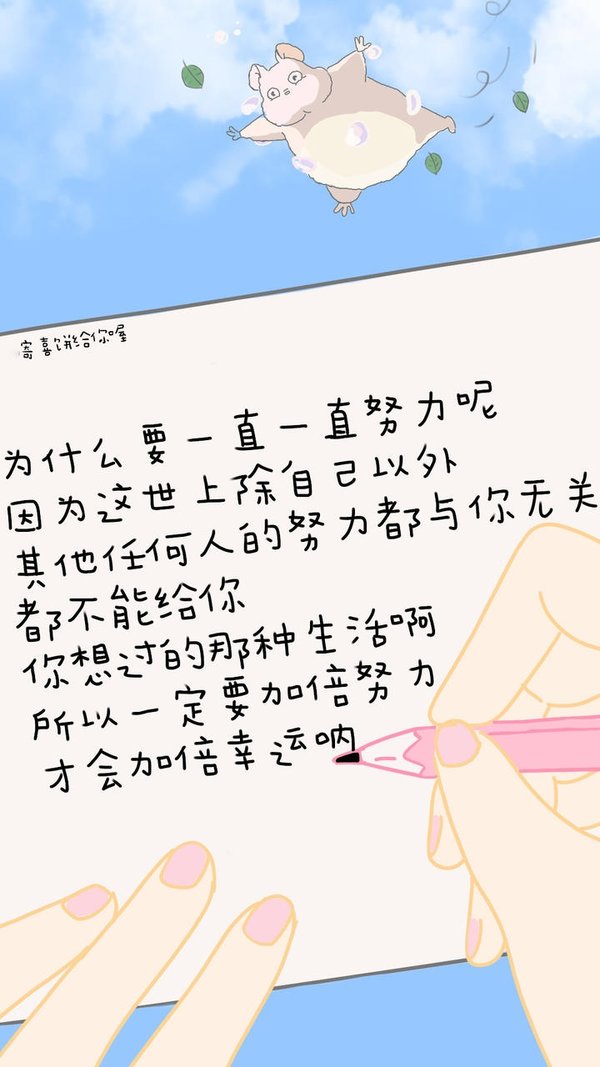 寄喜饼给你喔
为什么要一直一直努力呢
因为这世上除自己以外
其他任何人的努力都与你无关
都不能给你
你想过的那种生活啊
所以一定要加倍努力
才会加倍幸运呐